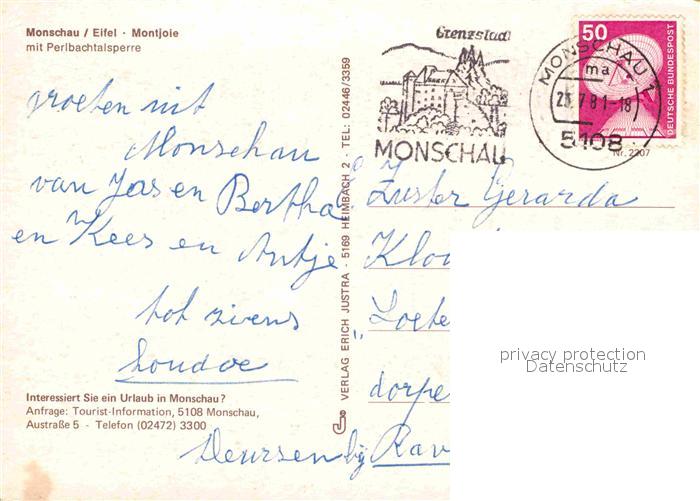 Monschau / Eifel · Montjoie
mit Perlbachtalsperre
groeten uit
Monschau
van Jas en Bertha
en Kees en Antje
tot ziens
houdoe
Interessiert Sie ein Urlaub in Monschau?
Anfrage: Tourist-Information, 5108 Monschau,
Austraße 5 - Telefon (02472) 3300
VERLAG ERICH JUSTRA · 5169 HEIMBACH 2 · TEL: 02446/3359
Grenzstadt
MONSCHAU
MONSCHAU 1
ma
7.81-18
5108
50
DEUTSCHE BUNDESPOST
Nr. 2207
Zuster Gerarda
Kloo
"Loete
dorpe
Deursen bij Rav
privacy protection
Datenschutz